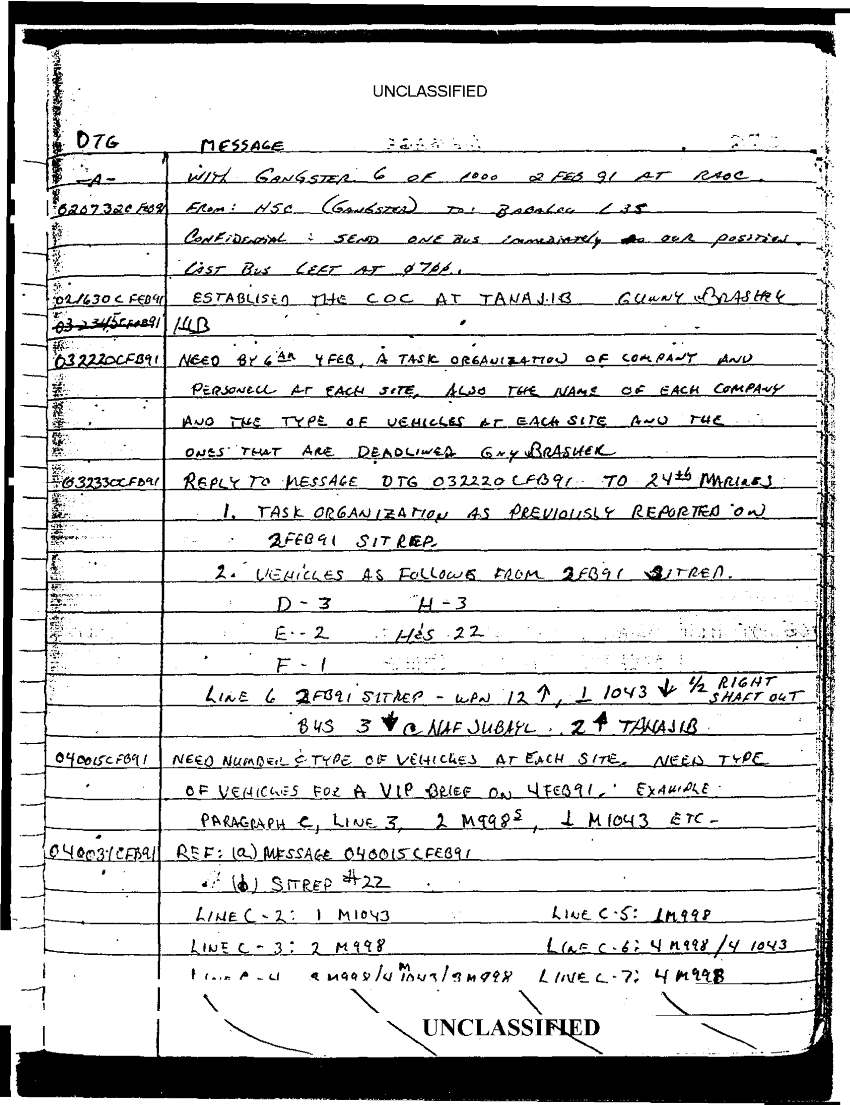 UNCLASSIFIED
DTG MESSAGE
-A- WITH GANGSTER 6 OF 1000 2 FEB 91 AT RAOC.
020732C FEB91 FROM: HSC (GANGSTER) TO: L 35
CONFIDENTIAL: SEND ONE BUS immediately to our position.
LAST BUS LEFT AT 0700.
021630C FEB91 ESTABLISED THE COC AT TANAJIB GUNNY BRASHER
032345CFEB91
032220CFB91 NEED BY 6AM 4FEB, A TASK ORGANIZATION OF COMPANY AND
PERSONELL AT EACH SITE, ALSO THE NAME OF EACH COMPANY
AND THE TYPE OF VEHICLES AT EACH SITE AND THE
ONES THAT ARE DEADLINED GNY BRASHER
032330CFB91 REPLY TO MESSAGE DTG 032220CFB91 TO 24th MARINES
1. TASK ORGANIZATION AS PREVIOUSLY REPORTED ON
2FEB91 SITREP
2. VEHICLES AS FOLLOWS FROM 2FB91 SITREP.
D - 3 H - 3
E - 2 H&S 22
F - 1
LINE 6 2FB91 SITREP - WPN 12 ↑, 1 1043 ↓ 1/2 RIGHT SHAFT OUT
BUS 3 ↓ @ NAF JUBAYL. 2 ↑ TANAJIB
040015CFB91 NEED NUMBER & TYPE OF VEHICLES AT EACH SITE. NEED TYPE
OF VEHICLES FOR A VIP BRIEF ON 4FEB91. EXAMPLE
PARAGRAPH C, LINE 3, 2 M998s, 1 M1043 ETC-
040031CFB91 REF: (a) MESSAGE 040015CFEB91
(b) SITREP #22
LINE C-2: 1 M1043 LINE C-5: 1M998
LINE C-3: 2 M998 LINE C-6: 4 M998/4 1043
M998/4 M1043/3M998 LINE C-7: 4 M998
UNCLASSIFIED